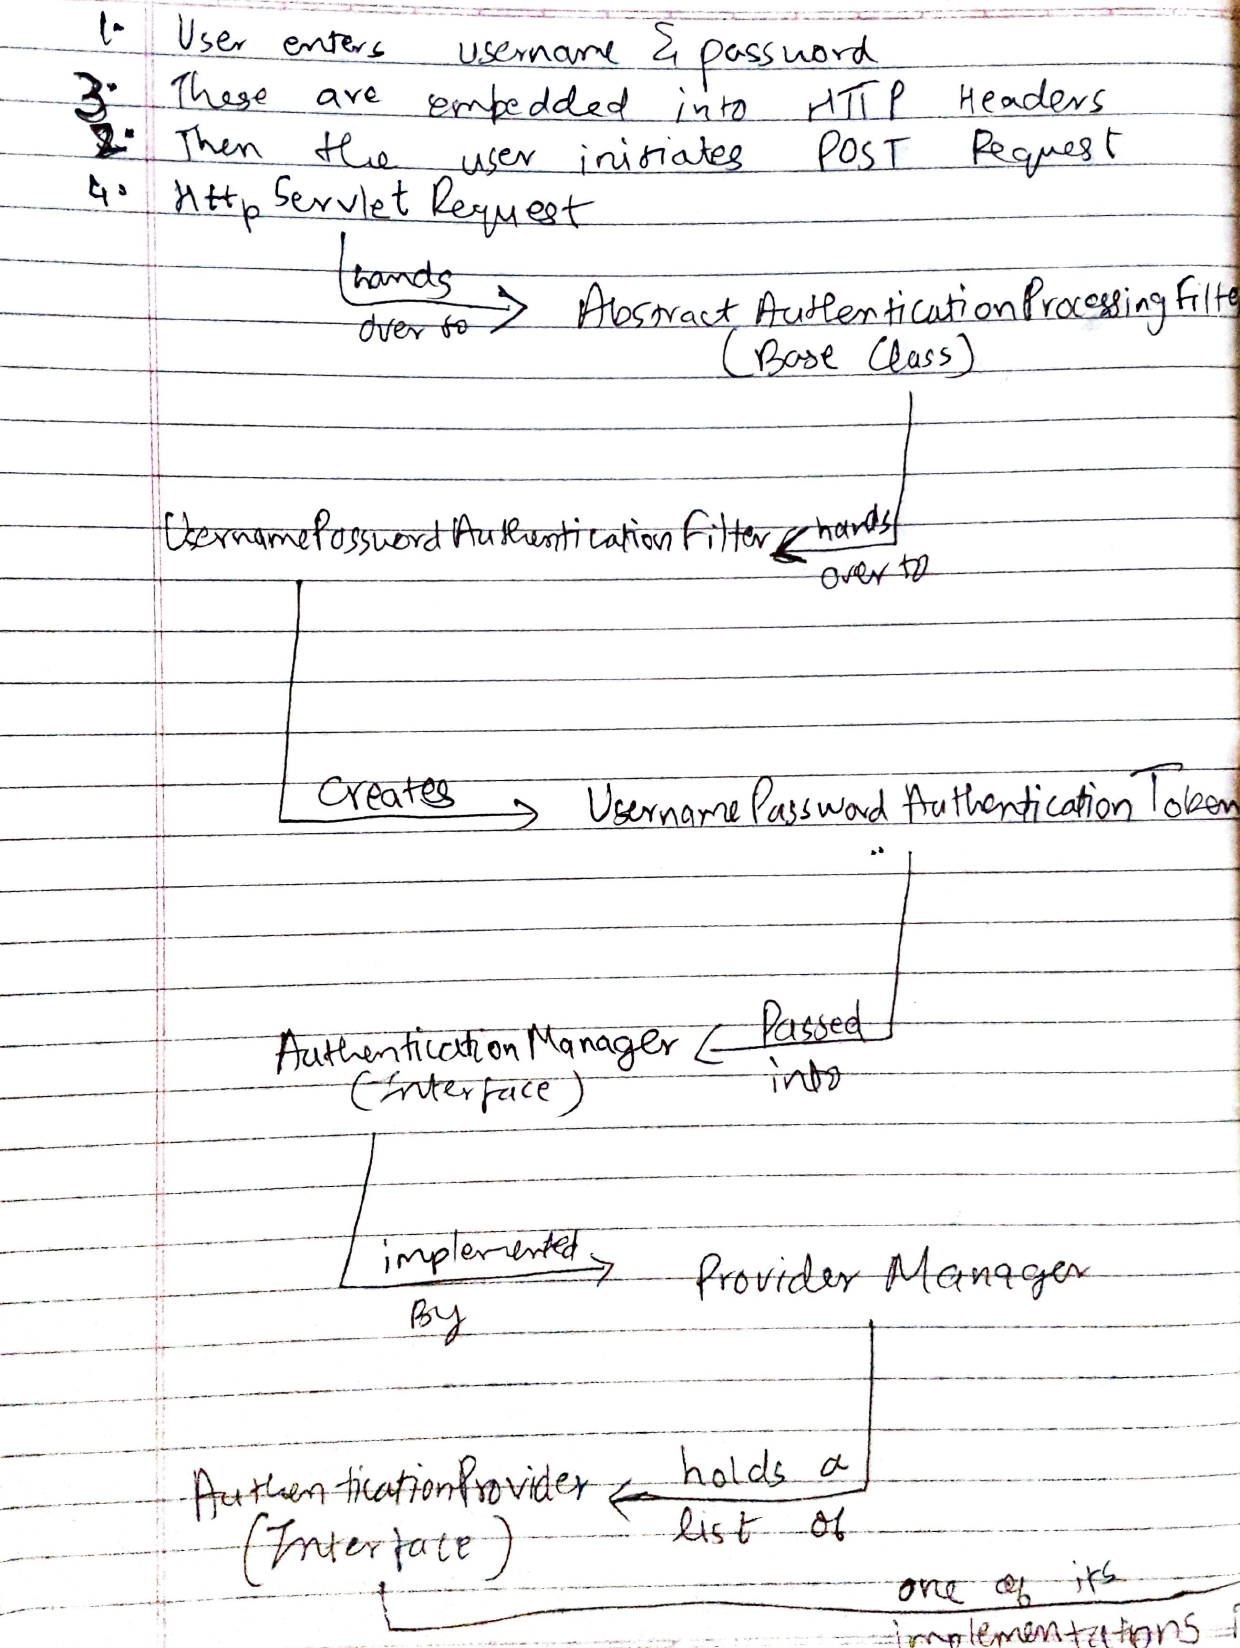 1. User enters username & password
3. These are embedded into HTTP Headers
2. Then the user initiates POST Request
4. Http Servlet Request
hands
over to
Abstract AuthenticationProcessing Filte
(Base Class)
UsernamePasswordAuthentication Filter
hands
over to
Creates
UsernamePassword Authentication Token
AuthenticationManager
(Interface)
Passed
into
implemented
By
Provider Manager
AuthenticationProvider
(Interface)
holds a
list of
one of its
implementations